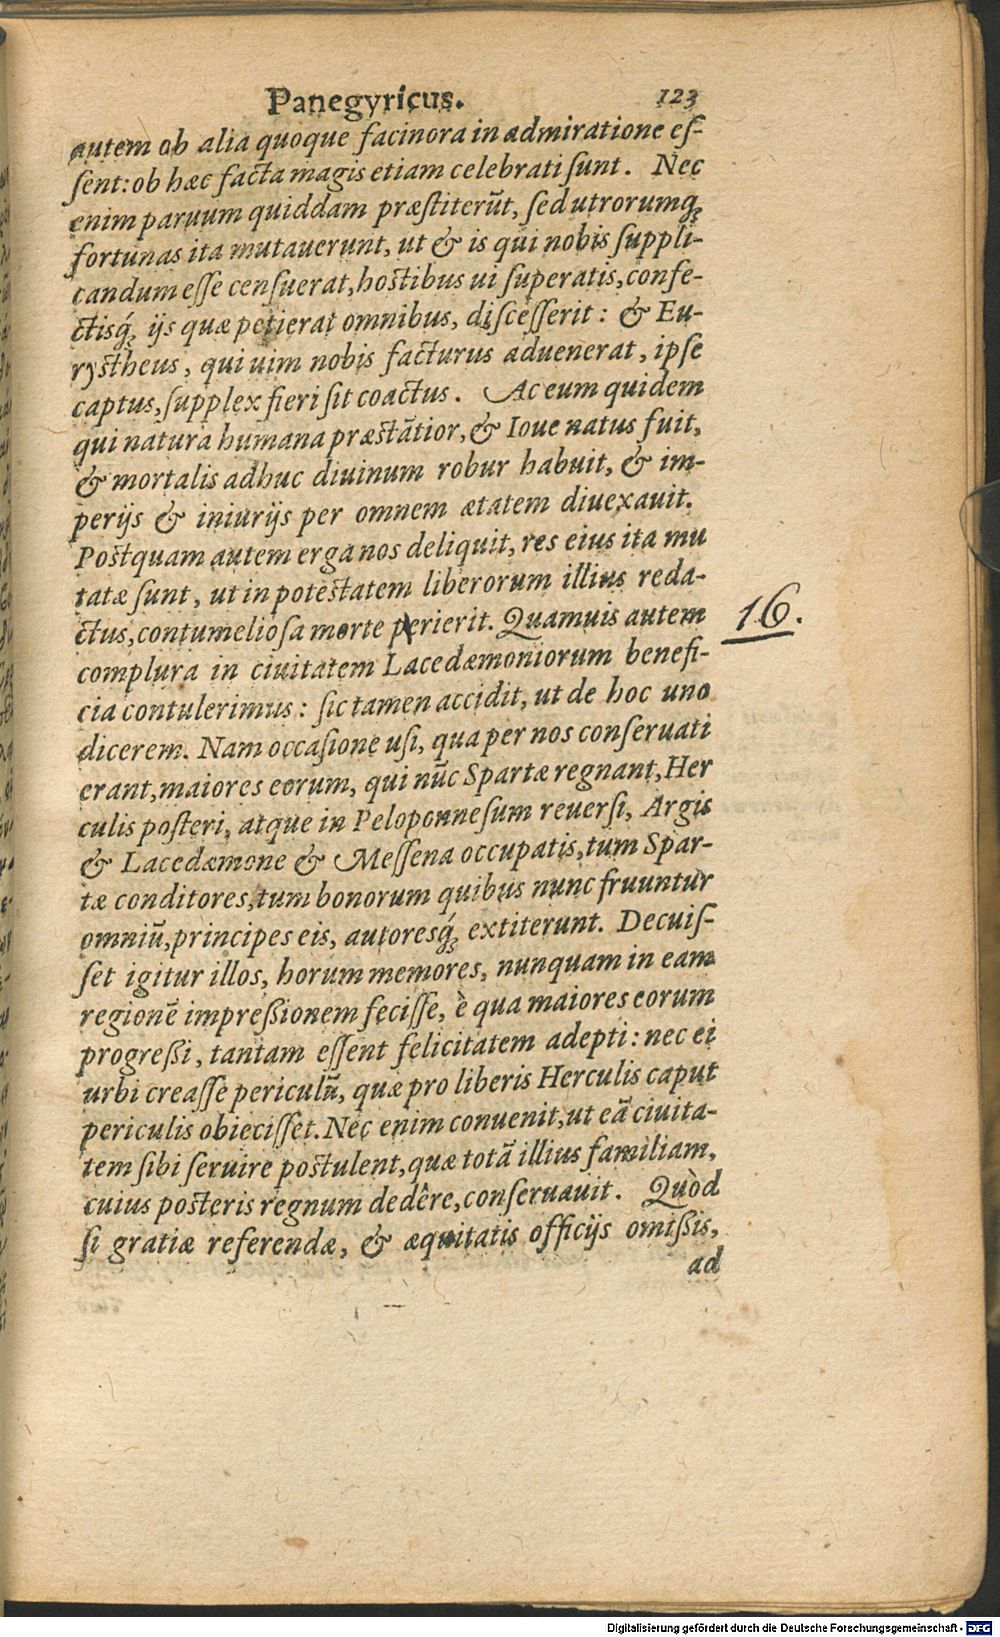 Panegyricus. 123
autem ob alia quoque facinora in admiratione eſ-
ſent: ob hæc facta magis etiam celebrati ſunt. Nec
enim paruum quiddam præſtiterūt, ſed utrorumq́ꝫ
fortunas ita mutauerunt, ut & is qui nobis ſuppli-
candum eſſe cenſuerat, hostibus ui ſuperatis, confe-
ctisq́ꝫ ijs quæ petierat omnibus, diſceſſerit: & Eu-
rystheus, qui uim nobis facturus aduenerat, ipſe
captus, ſupplex fieri ſit coactus. Ac eum quidem
qui natura humana præstātior, & Ioue natus fuit,
& mortalis adhuc diuinum robur habuit, & im-
perijs & iniurijs per omnem ætatem diuexauit.
Postquam autem erga nos deliquit, res eius ita mu
tatæ ſunt, ut in potestatem liberorum illius reda-
ctus, contumelioſa morte perierit. Quamuis autem
16.
complura in ciuitatem Lacedæmoniorum benefi-
cia contulerimus: ſic tamen accidit, ut de hoc uno
dicerem. Nam occaſione uſi, qua per nos conſeruati
erant, maiores eorum, qui nūc Spartæ regnant, Her
culis poſteri, atque in Peloponneſum reuerſi, Argis
& Lacedæmone & Meſſena occupatis, tum Spar-
tæ conditores, tum bonorum quibus nunc fruuntur
omniū, principes eis, autoresq́ꝫ extiterunt. Decuiſ-
ſet igitur illos, horum memores, nunquam in eam
regionē impreßionem feciſſe, è qua maiores eorum
progreßi, tantam eſſent felicitatem adepti: nec ei
urbi creaſſe periculū, quæ pro liberis Herculis caput
periculis obieciſſet. Nec enim conuenit, ut eā ciuita-
tem ſibi ſeruire postulent, quæ totā illius familiam,
cuius posteris regnum dedêre, conſeruauit. Quòd
ſi gratiæ referendæ, & æquitatis officijs omißis,
ad
Digitalisierung gefördert durch die Deutsche Forschungsgemeinschaft - DFG